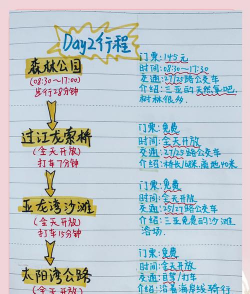 Day2行程
森林公园
(08:30~17:00)
步行28分钟
门票:145元
时间:08:30~17:30
交通:27/25路公交车
介绍:三亚的天然氧吧,
树林很多.
过江龙索桥
(全天开放)
打车7分钟
门票:免费
时间:全天开放
交通:27/25路公交车
亚龙湾沙滩
(全天开放)
打车15分钟
门票:免费
时间:全天开放
交通:25/27路公交车
介绍:三亚免费的沙滩
浴场.
太阳湾公路
(全天开放)
门票:免费
时间:全天开放
交通:自驾/打车
介绍:沿着海岸线骑行